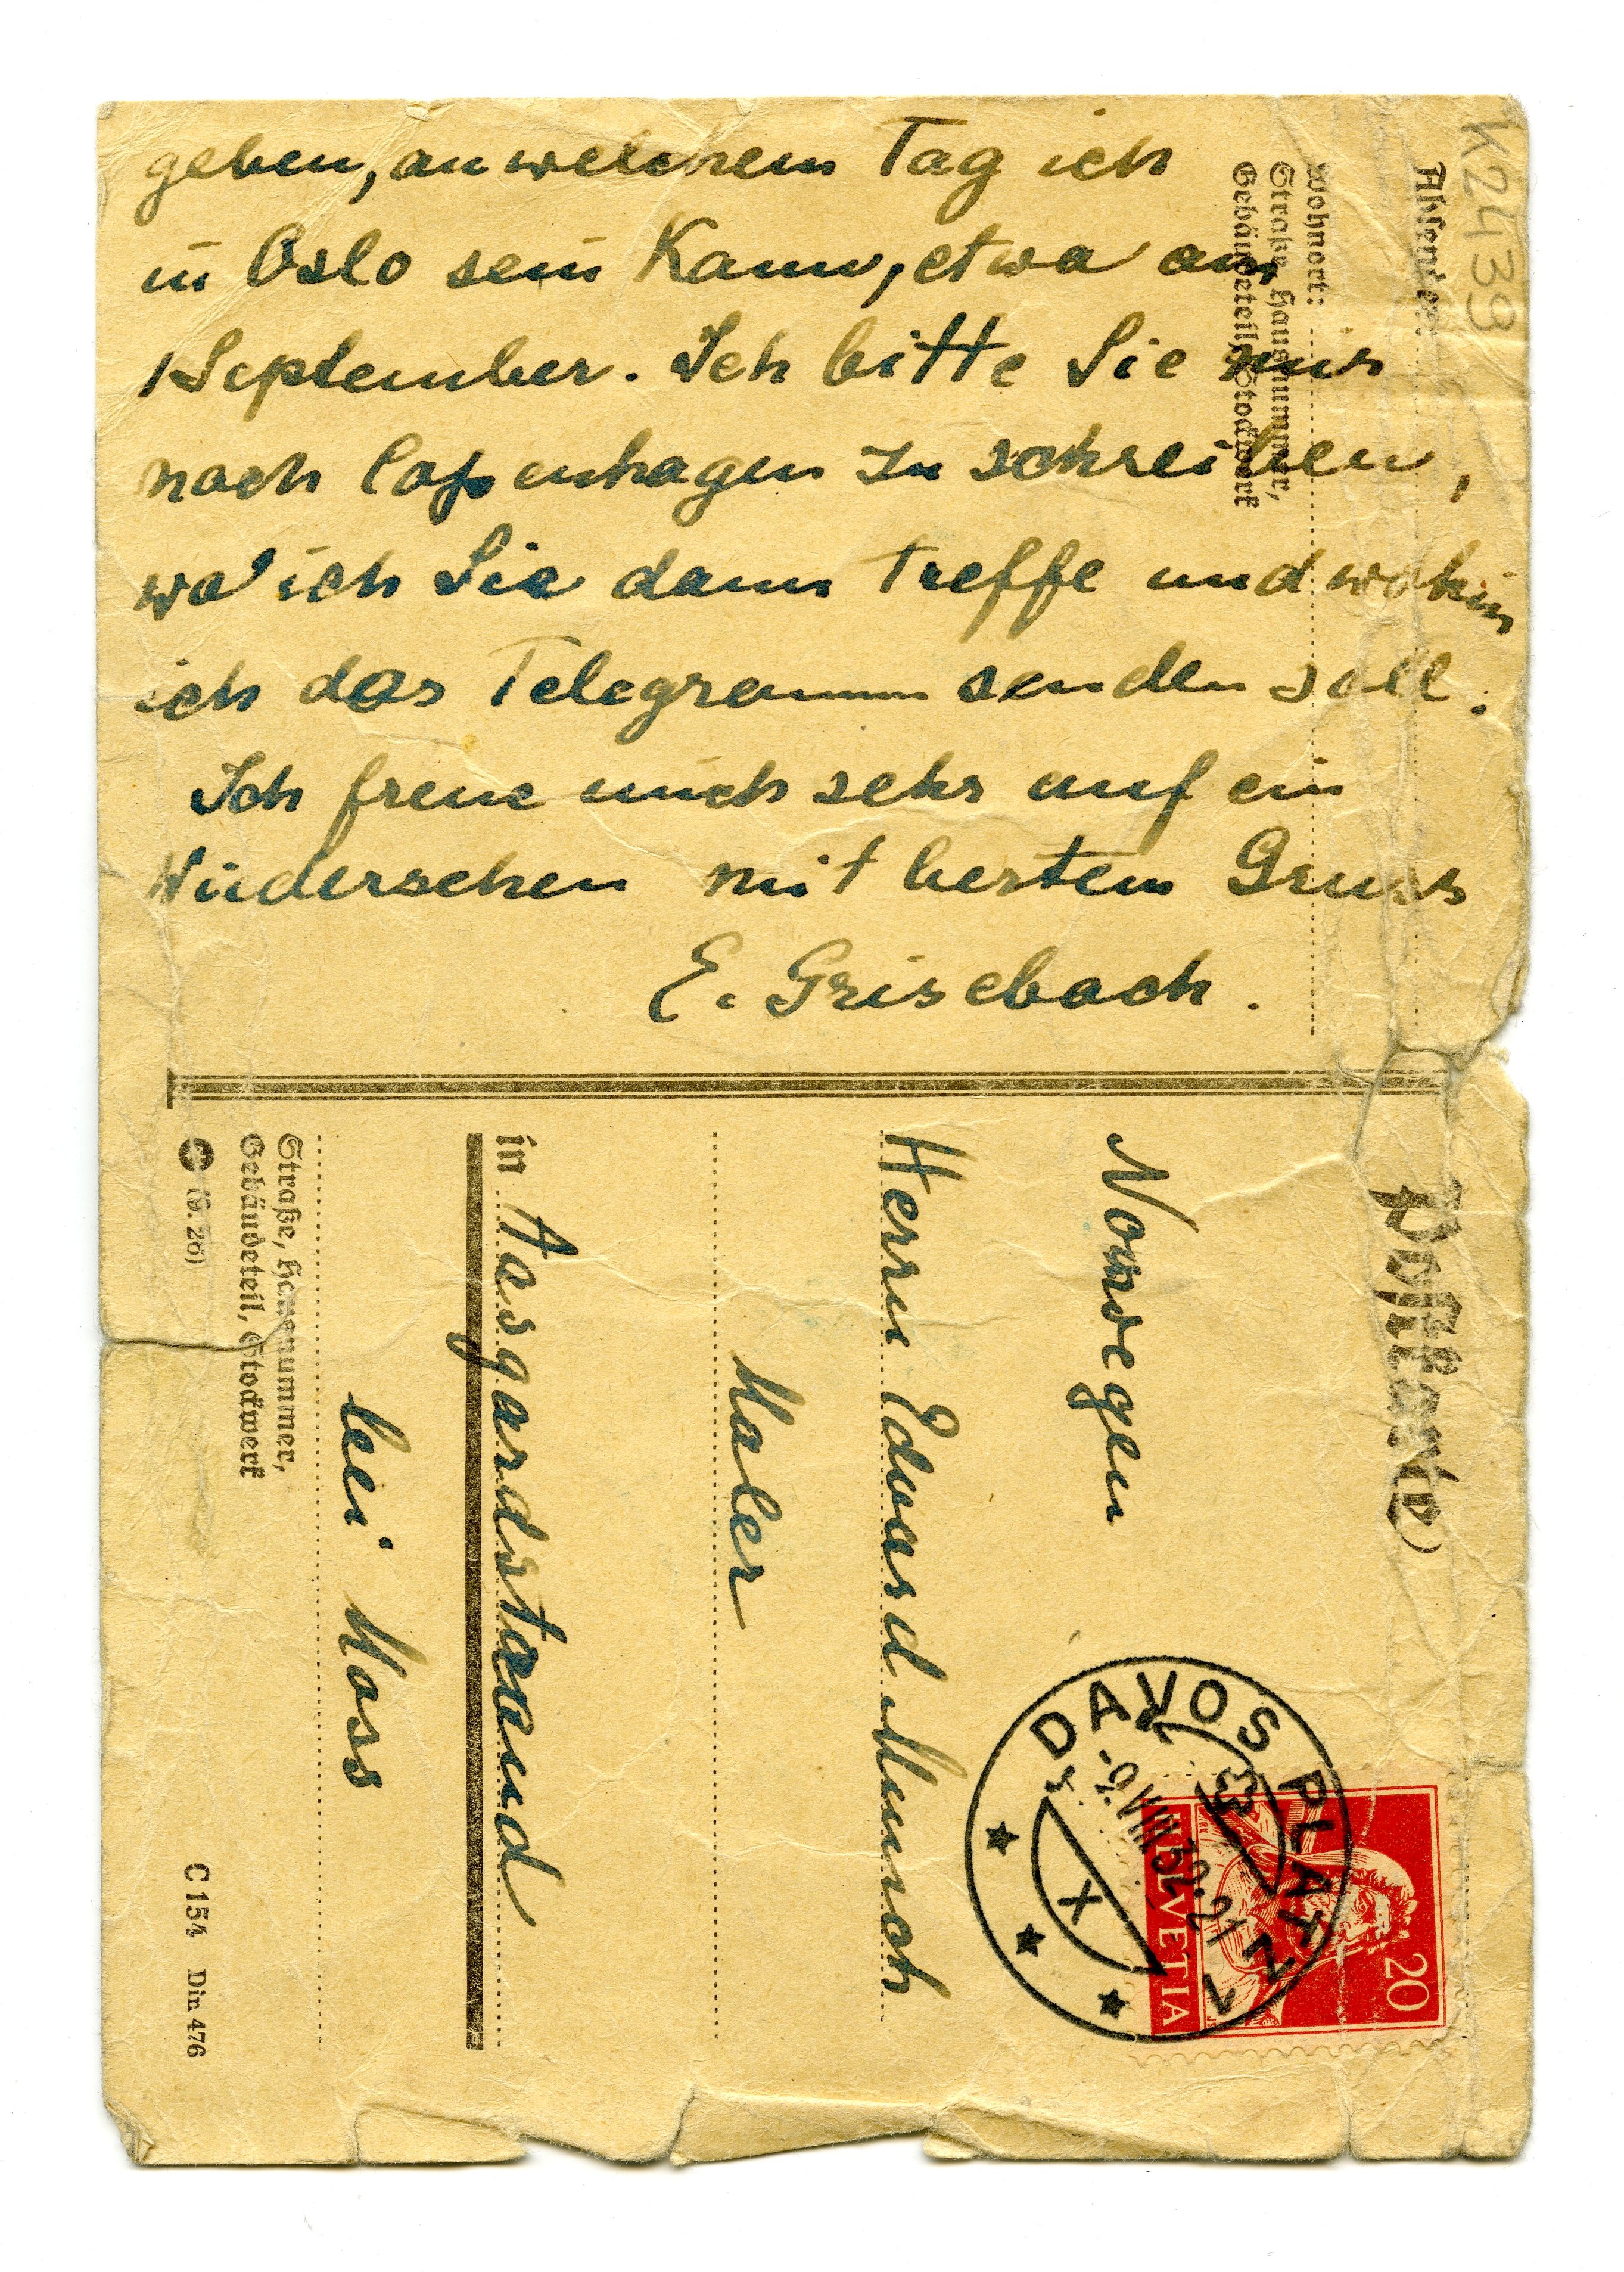 geben, an welchem Tag ich
in Oslo sein Kann, etwa am
1 September. Ich bitte Sie mir
nach Copenhagen zu schreiben,
wo ich Sie dann treffe und wohin
ich das Telegramm senden soll.
Ich freue mich sehr auf ein
Wiedersehen mit bestem Gruss
E. Grisebach.
K2439
Absender:
Wohnort:
Straße, Hausnummer,
Gebäudeteil, Stockwerk
Postkarte
DAVOS PLATZ 1
-9.VIII.32.21
X
20
HELVETIA
Norwegen
Herrn Edvard Munch
Maler
in Aasgardstrand
bei Moss
Straße, Hausnummer,
Gebäudeteil, Stockwerk
(9.26)
C 154 Din 476